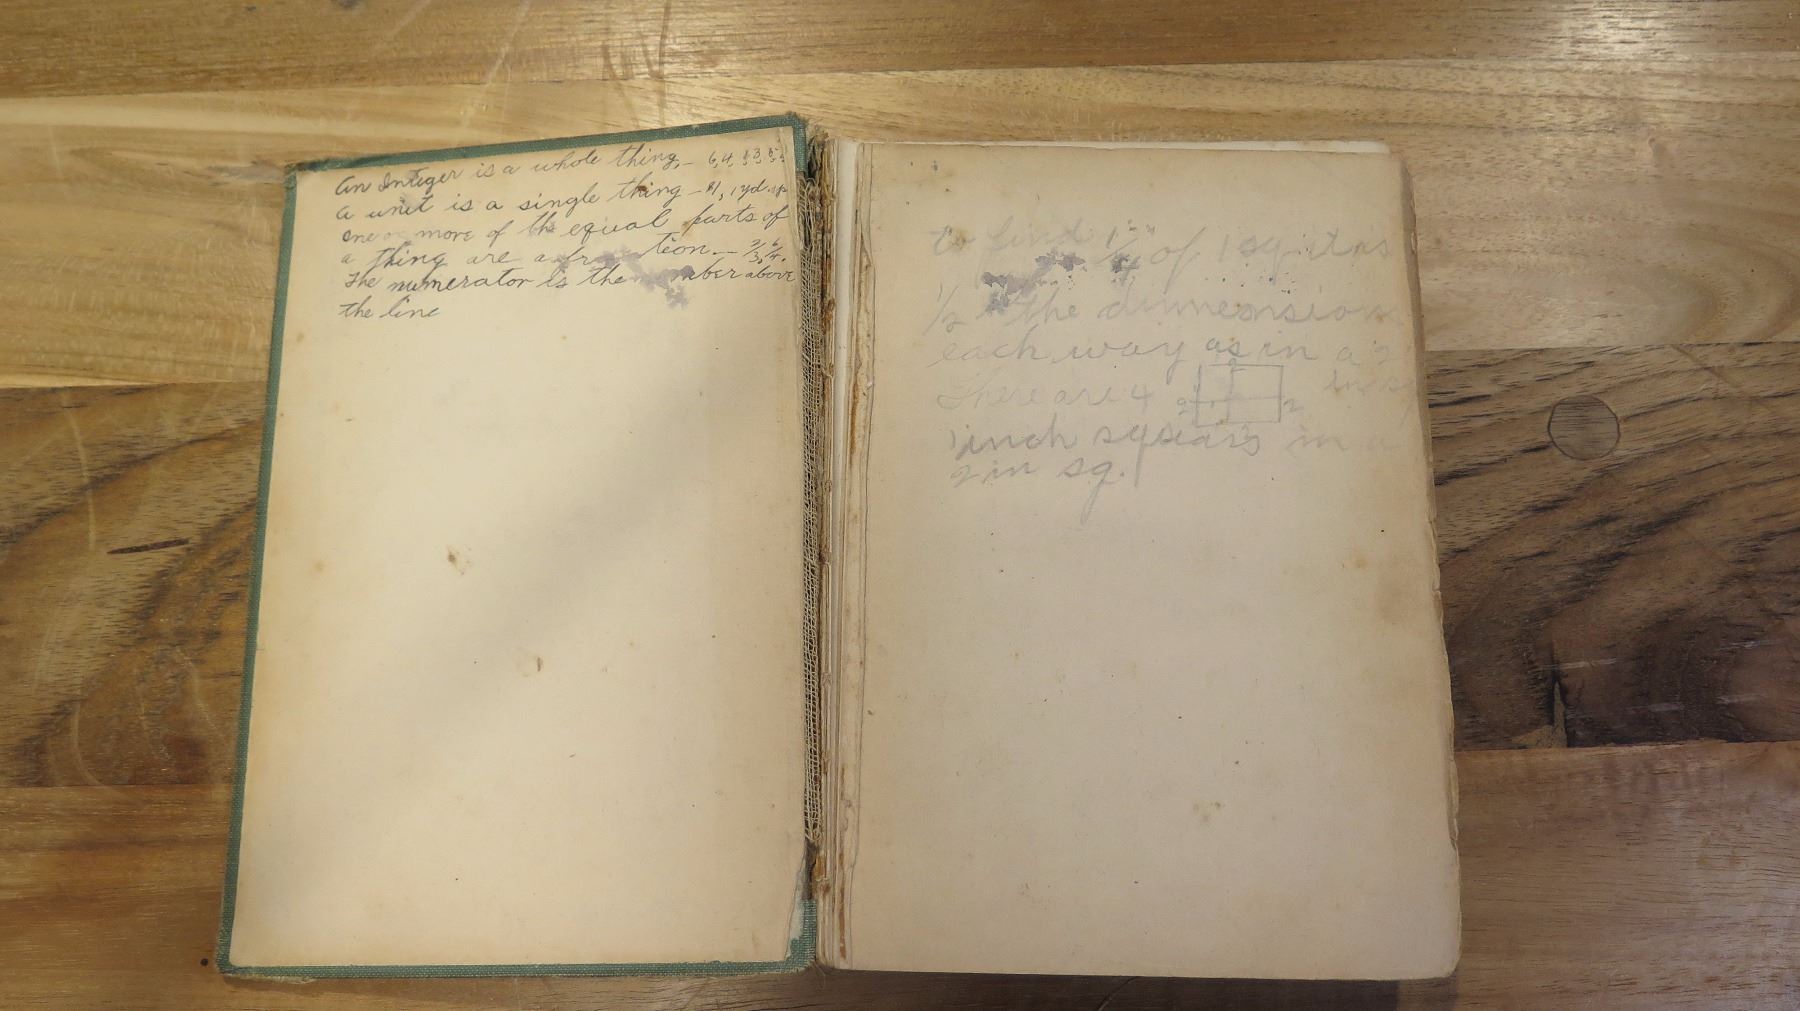 An Integer is a whole thing, – 6, 4,
A unit is a single thing – $1, 1 yd.
one or more of the equal parts of
a thing are a fraction. – 2/3, 6/4.
The numerator is the number above
the line
to find 1/4 of 1 sq. it is
1/2 the dimension
each way as in a 2
There are 4
2 2
1 inch squares in a
2 in sq.